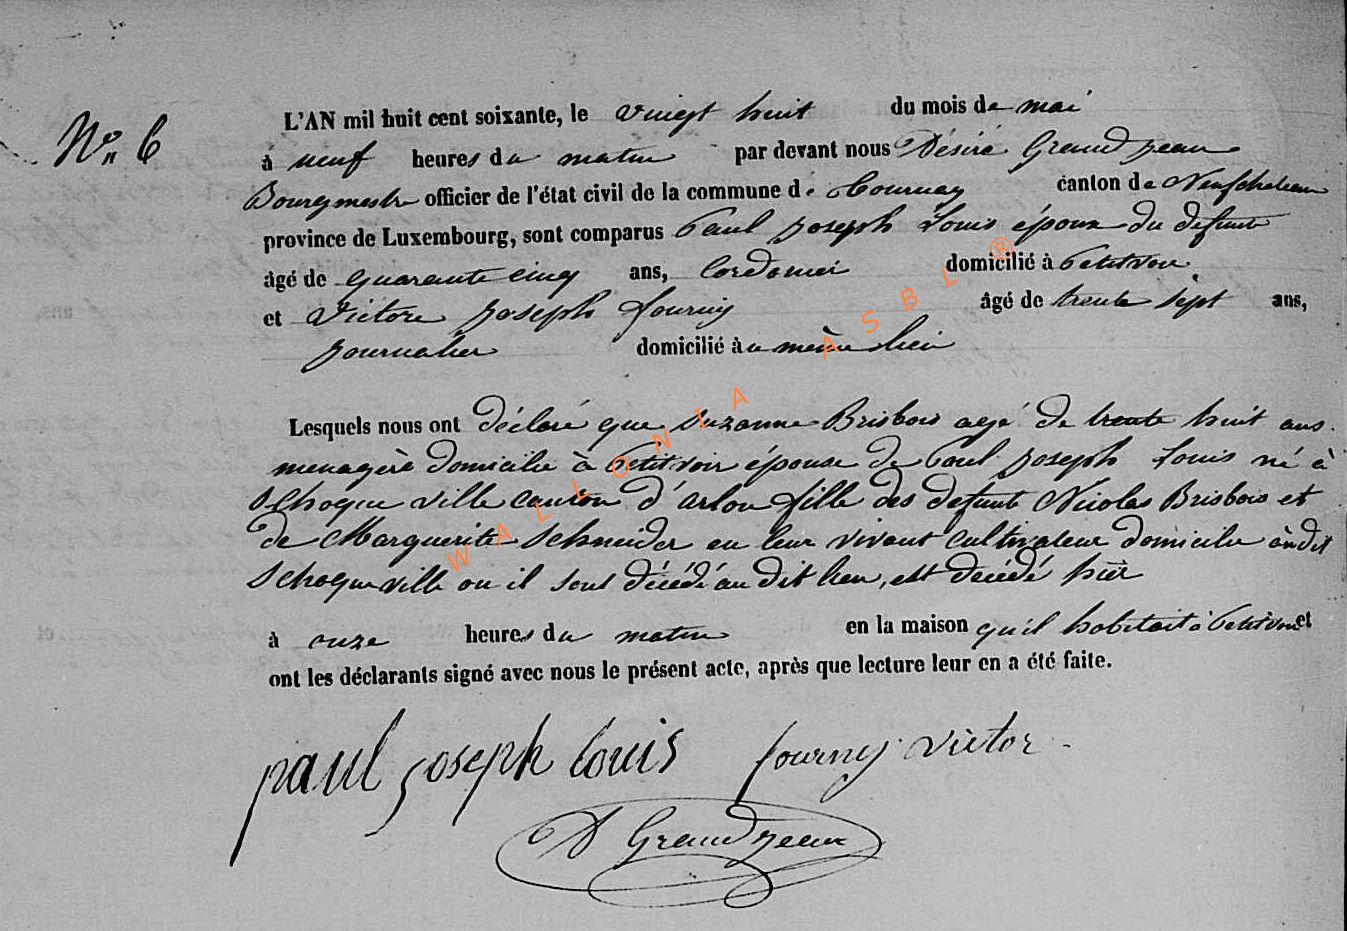 No 6
L'AN mil huit cent soixante, le vingt huit du mois de mai
à neuf heures du matin par devant nous Désiré Grandjean
Bourgmestre officier de l'état civil de la commune de Tournay canton de Neufchateau
province de Luxembourg, sont comparus Paul Joseph Louis époux du defunte
âgé de quarante cinq ans, Cordonnier domicilié à Petitvoir
et Victore Joseph Fourny âgé de trente sept ans,
journalier domicilié au même lieu
Lesquels nous ont déclaré que Suzanne Brisbois agé de trente huit ans
menagère domicilie à Petitvoir épouse de Paul Joseph Louis né à
Schoqueville canton d'arlon fille des defunts Nicolas Brisbois et
de Marguerite Schneider en leur vivant cultivateur domicilie audit
Schoqueville ou il sont décédé au dit lieu, est decédé hier
à onze heures du matin en la maison qu'il habitait à Petitvoir et
ont les déclarants signé avec nous le présent acte, après que lecture leur en a été faite.
paul joseph louis fourny victor
D Grandjean
WALLONIA ASBL ®